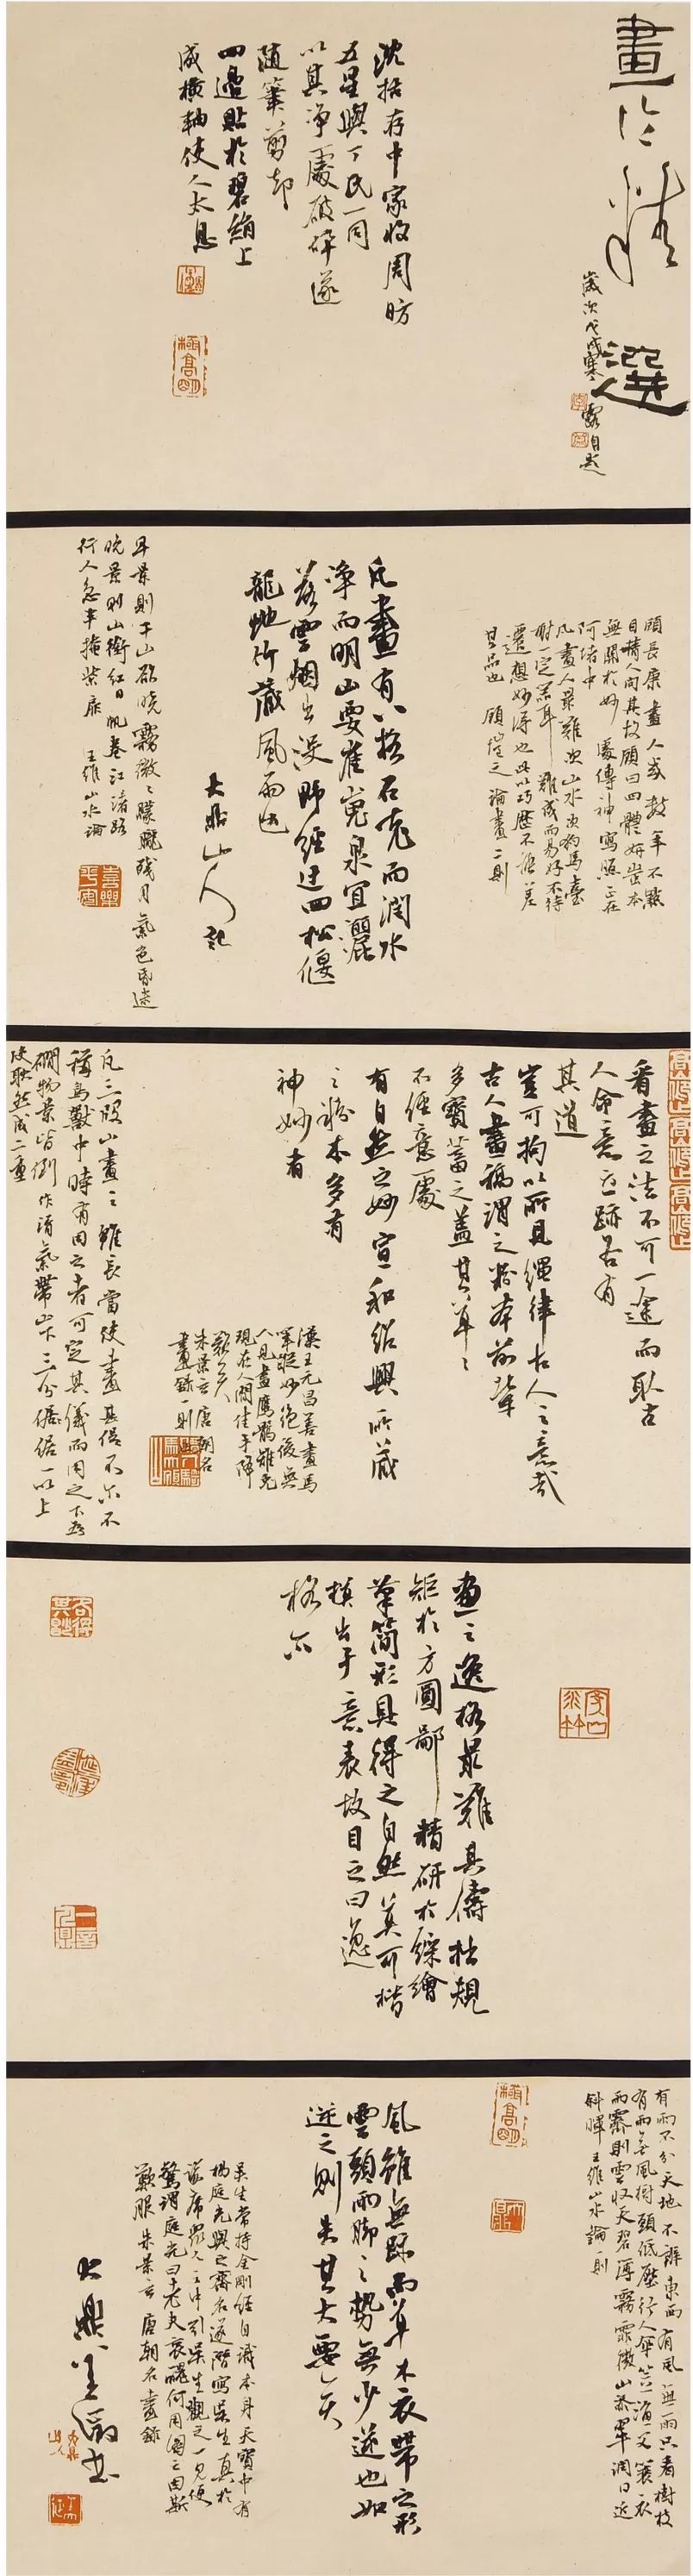 畫論精選
歲次戊戌寒露自題
沈括存中家收周昉
五星與丁氏一同
以其净處破碎遂
隨筆剪却
四邊貼於碧絹上
成横軸使人太息
顧長康畫人或數年不點
目精人問其故顧曰四體妍蚩本
無關於妙處傳神寫照正在
阿堵中
凡畫人最難次山水次狗馬臺
榭一定器耳難成而易好不待
遷想妙得也此以巧歷不能差
其品也 顧愷之論畫二則
凡畫有八格石老而潤水
净而明山要崔嵬泉宜灑
落雲烟出没野徑迂回松偃
龍蛇竹藏風雨也
大鼎山人記
早景則千山欲曉霧微微朦朧殘月氣色昏迷
晚景則山銜紅日帆卷江渚路
行人急半掩柴扉 王維山水論
看畫之法不可一途而取古
人命意立跡各有
其道
豈可拘以所見繩律古人之意哉
古人畫稿謂之粉本前輩
多寶蓄之蓋其草草
不經意處
有自然之妙宣和紹興所藏
之粉本多有
神妙者
漢王元昌善畫馬
筆蹤妙絶後無
人見畫鷹鶻雉兔
現在人間佳手降
歎矣
朱景玄唐朝名
畫録一則
凡三段山畫之雖長當使畫甚促不尔不
稱鳥獸中時有用之者可定其儀而用之下爲
澗物景皆倒作清氣帶山下三分倨一以上
使耿然成二重
畫之逸格最難其儔拙規
矩於方圓鄙精研於綵繪
筆簡形具得之自然莫可楷
模出于意表故目之曰逸
格尔
有雨不分天地不辨東西有風無雨只看樹枝
有雨無風樹頭低壓行人傘笠漁父蓑衣
雨霽則雲收天碧薄霧霏微山添翠潤日近
斜暉 王維山水論一則
風雖無跡而草木衣帶之形
雲頭雨脚之勢無少逆也如
逆之則失其大要矣
吴生常持金剛經自識本身天寶中有
楊庭光與之齊名遂潛寫吴生真於
講席衆人之中引吴生觀之一見便
驚謂庭光曰老夫衰醜何用圖之因斯
歎服 朱景玄唐朝名畫録
大鼎